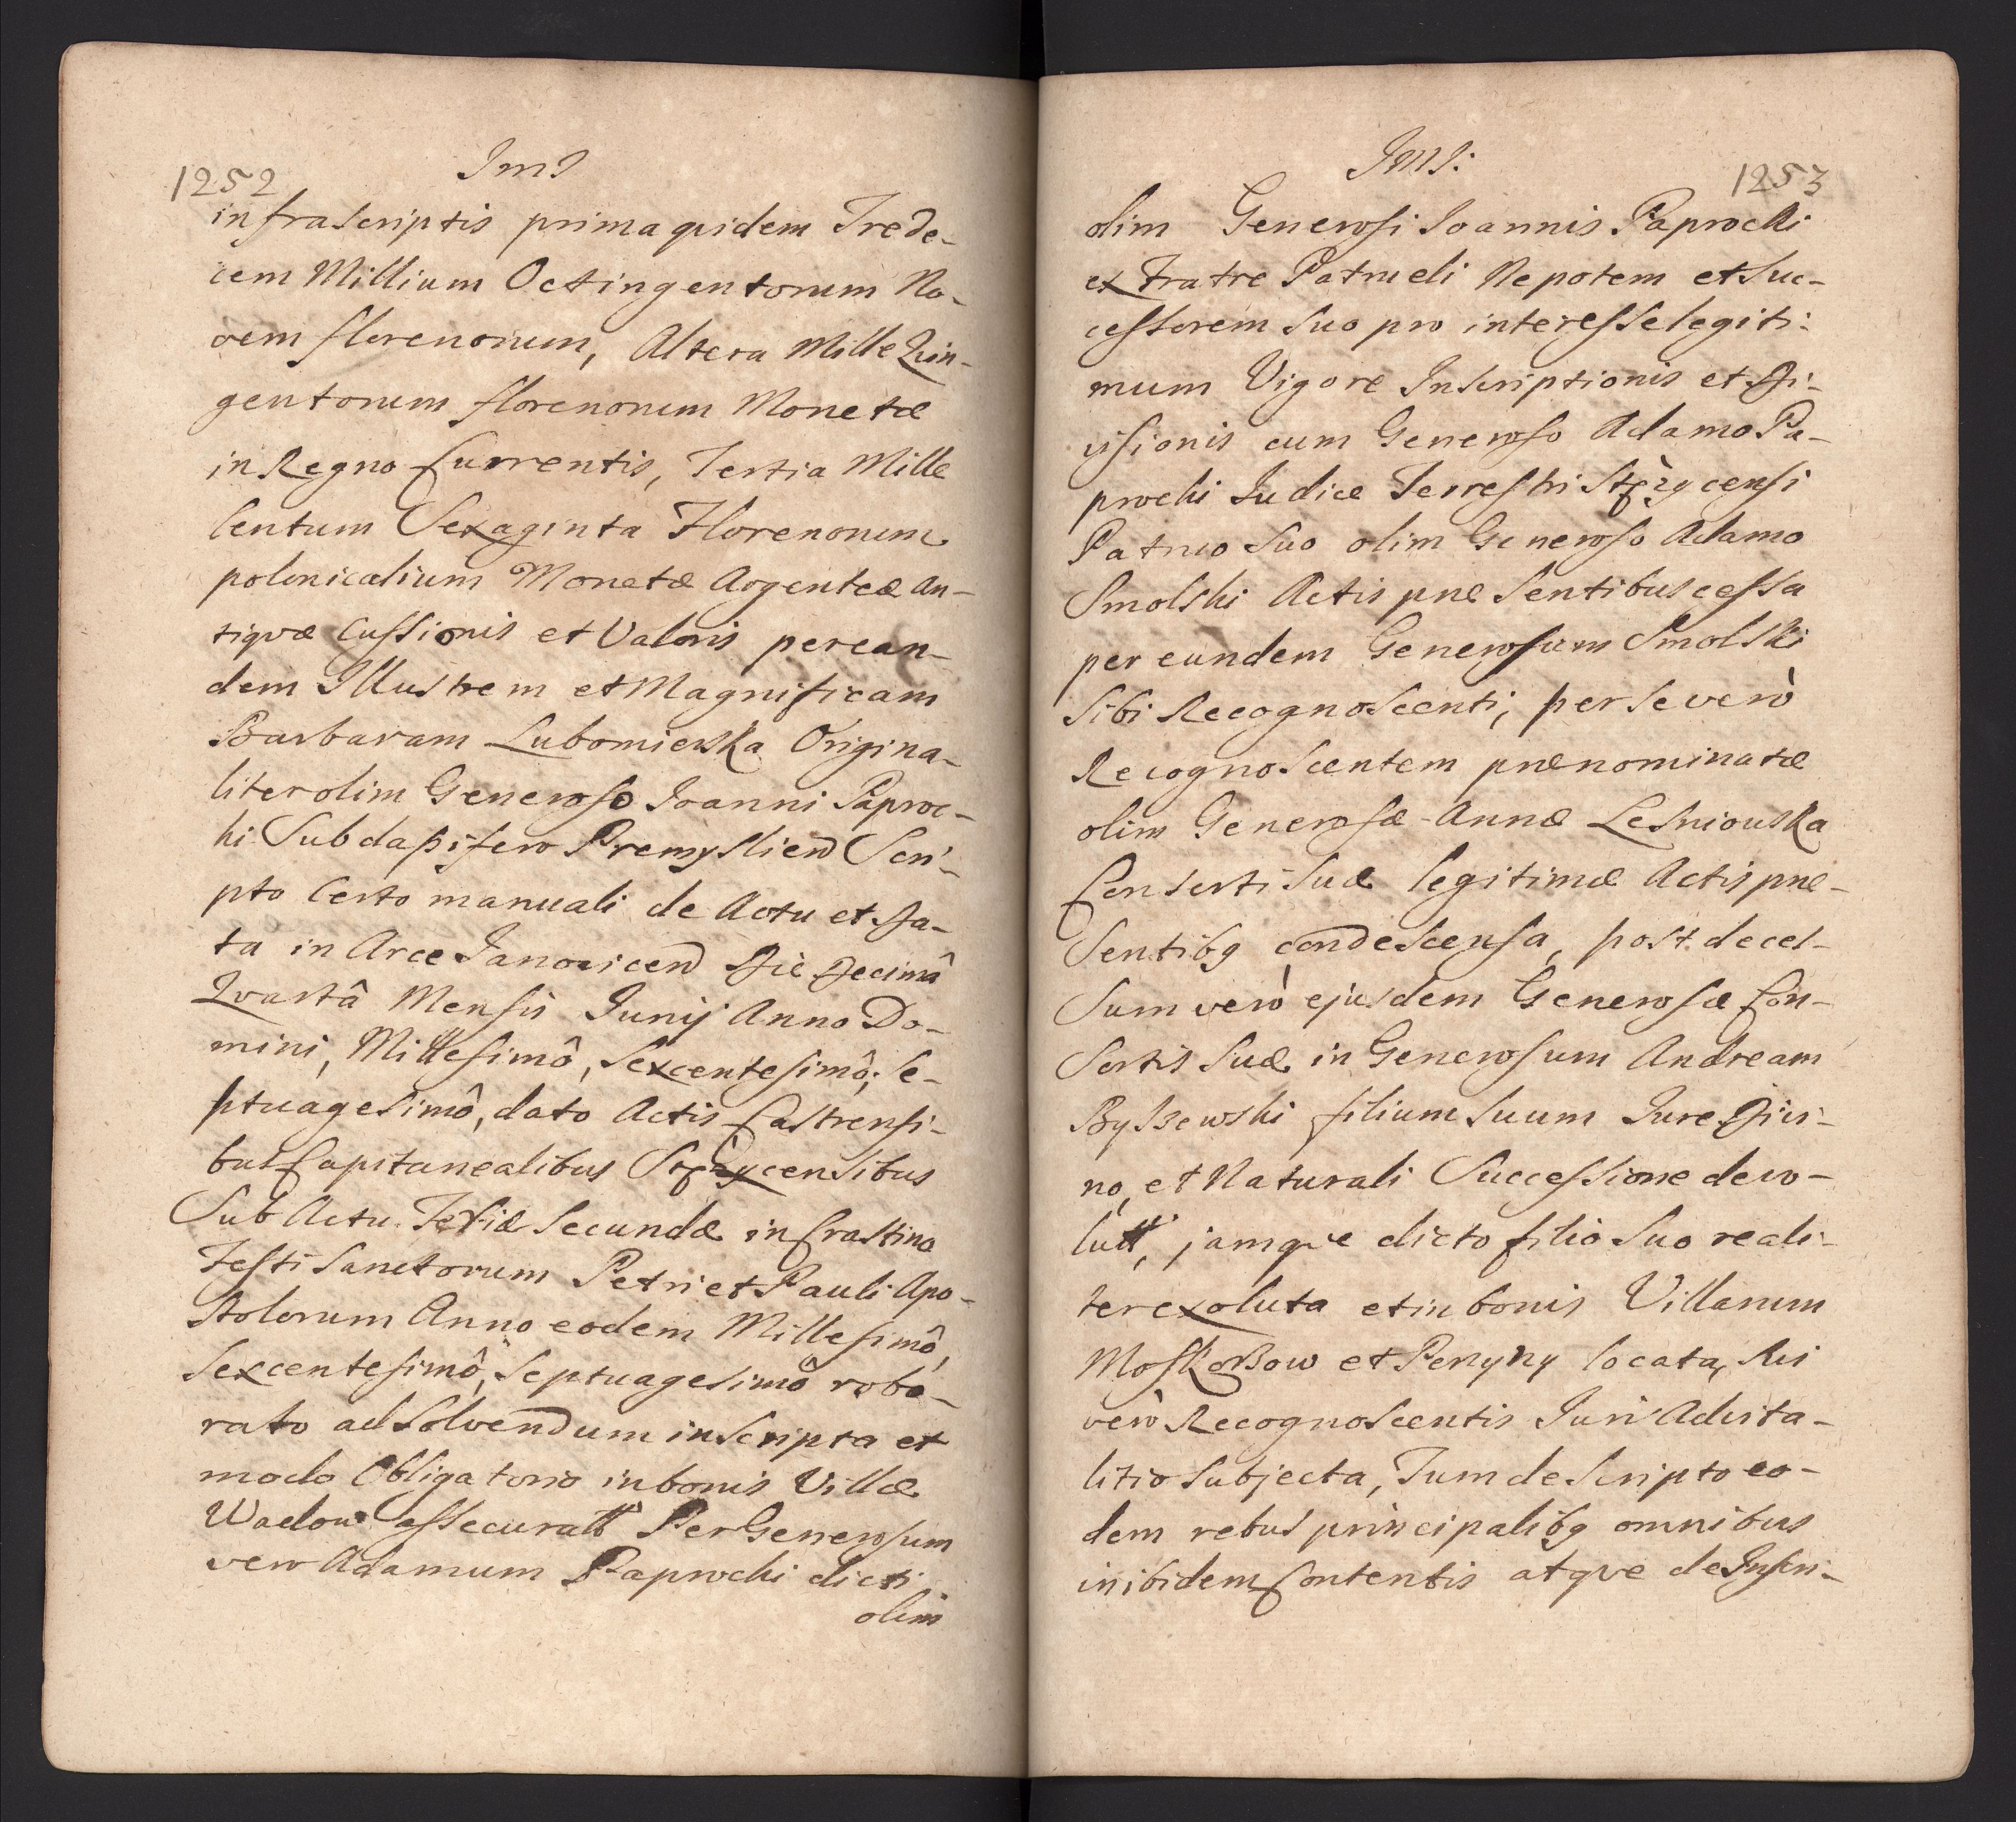 1252
Jms
infrascriptis prima quidem Trede-
cem Millium Octingentorum No-
vem florenorum, Altera Mille Quin-
gentorum florenorum Monetæ
in Regno Currentis, Tertia Mille
Centum Sexaginta Florenorum
polonicalium Monetæ Argenteæ an-
tiqvæ Cussionis et Valoris per ean-
dem Illustrem et Magnificam
Barbaram Lubomierska Origina-
liter olim Generoso Ioanni Paproc-
ki Subdapifero Premyslien Scri-
pto Certo manuali de Actu et Da-
ta in Arce Janovicen Die Decimâ
Qvartâ Mensis Junij Anno Do-
mini, Millesimô, Sexcentesimô, Se-
ptuagesimô, dato Actis Castrensi-
bus Capitanealibus Stężycensibus
Sub Actu Feriæ Secundæ in Crastino
Festi Sanctorum Petri et Pauli Apo-
stolorum Anno eodem Millesimô,
Sexcentesimô, Septuagesimô robo-
rato ad Solvendum inscripta et
modo Obligatorio in bonis Villæ
Waclow assecuratt Per Generosum
vero Adamum Paprocki dicti
olim
JMS:
1253
olim Generosi Ioannis Paprocki
ex Fratre Patrueli Nepotem et Suc-
cessorem Suo pro interesse legiti-
mum Vigore Inscriptionis et Di-
visionis cum Generoso Adamo Pa-
procki Iudice Terrestri Stężycensi
Patruo Suo olim Generoso Adamo
Smolski Actis præsentibus cessa
per eundem Generosum Smolski
Sibi Recognoscenti, per se verò
Recognoscentem prænominatæ
olim Generosæ Annæ Lesniowska
Consorti Suæ legitimæ Actis præ-
Sentibg condescensa, post deces-
Sum verò ejusdem Generosæ Con-
Sortis Suæ in Generosum Andream
Byszewski filium Suum Iure Divi-
no, et Naturali Successione devo-
lutt, jamqve dicto filio Suo reali-
ter exoluta et in bonis Villarum
Moskorzow et Penyny locata, Sui
verò Recognoscentis Iuri Advita-
litio Subjecta, Tum de Scripto eo-
dem rebus principalibg omnibus
inibidem Contentis atqve de Inscri-